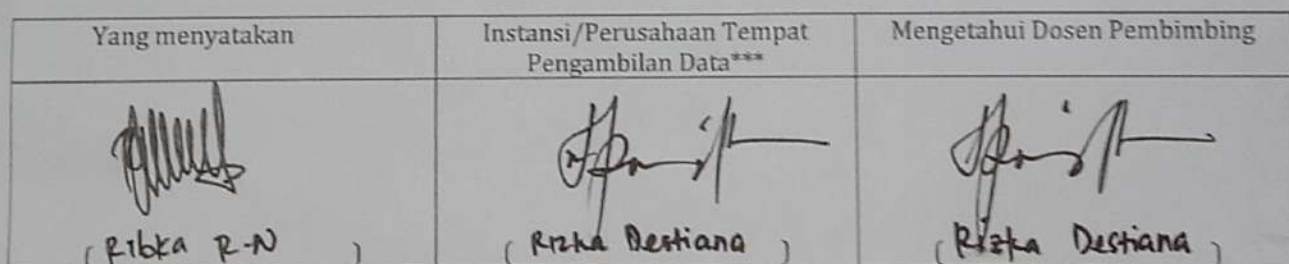 Yang menyatakan
Instansi/Perusahaan Tempat
Pengambilan Data***
Mengetahui Dosen Pembimbing
( Ribka R-N )
( Rizka Destiana )
( Rizka Destiana )